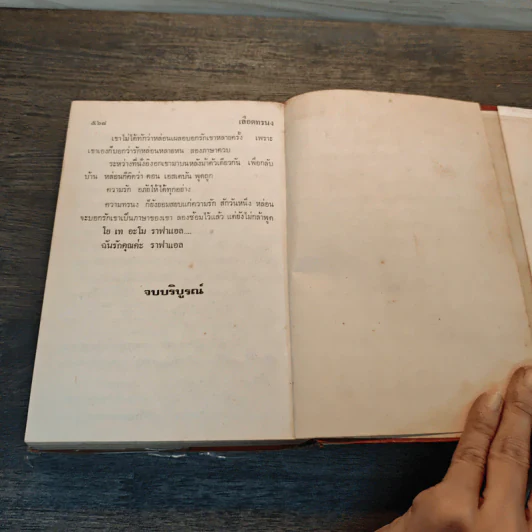 ๕๒๘ เลือดทรนง
เขาไม่ได้ทักว่าหล่อนเผลอบอกรักเขาหลายครั้ง เพราะ
เขาเองก็บอกว่ารักหล่อนหลายหน สองภาษาครบ
ระหว่างที่นั่งอิงอกเขามาบนหลังม้าตัวเดียวกัน เพื่อกลับ
บ้าน หล่อนก็คิดว่า ดอน เอสเตบัน พูดถูก
ความรัก อภัยให้ได้ทุกอย่าง
ความทรนง ก็ยังยอมสยบแก่ความรัก สักวันหนึ่ง หล่อน
จะบอกรักเขาเป็นภาษาของเขา ลองซ้อมไว้แล้ว แต่ยังไม่กล้าพูด
โอ เท อะโม ราฟาแอล....
ฉันรักคุณค่ะ ราฟาแอล
จบบริบูรณ์